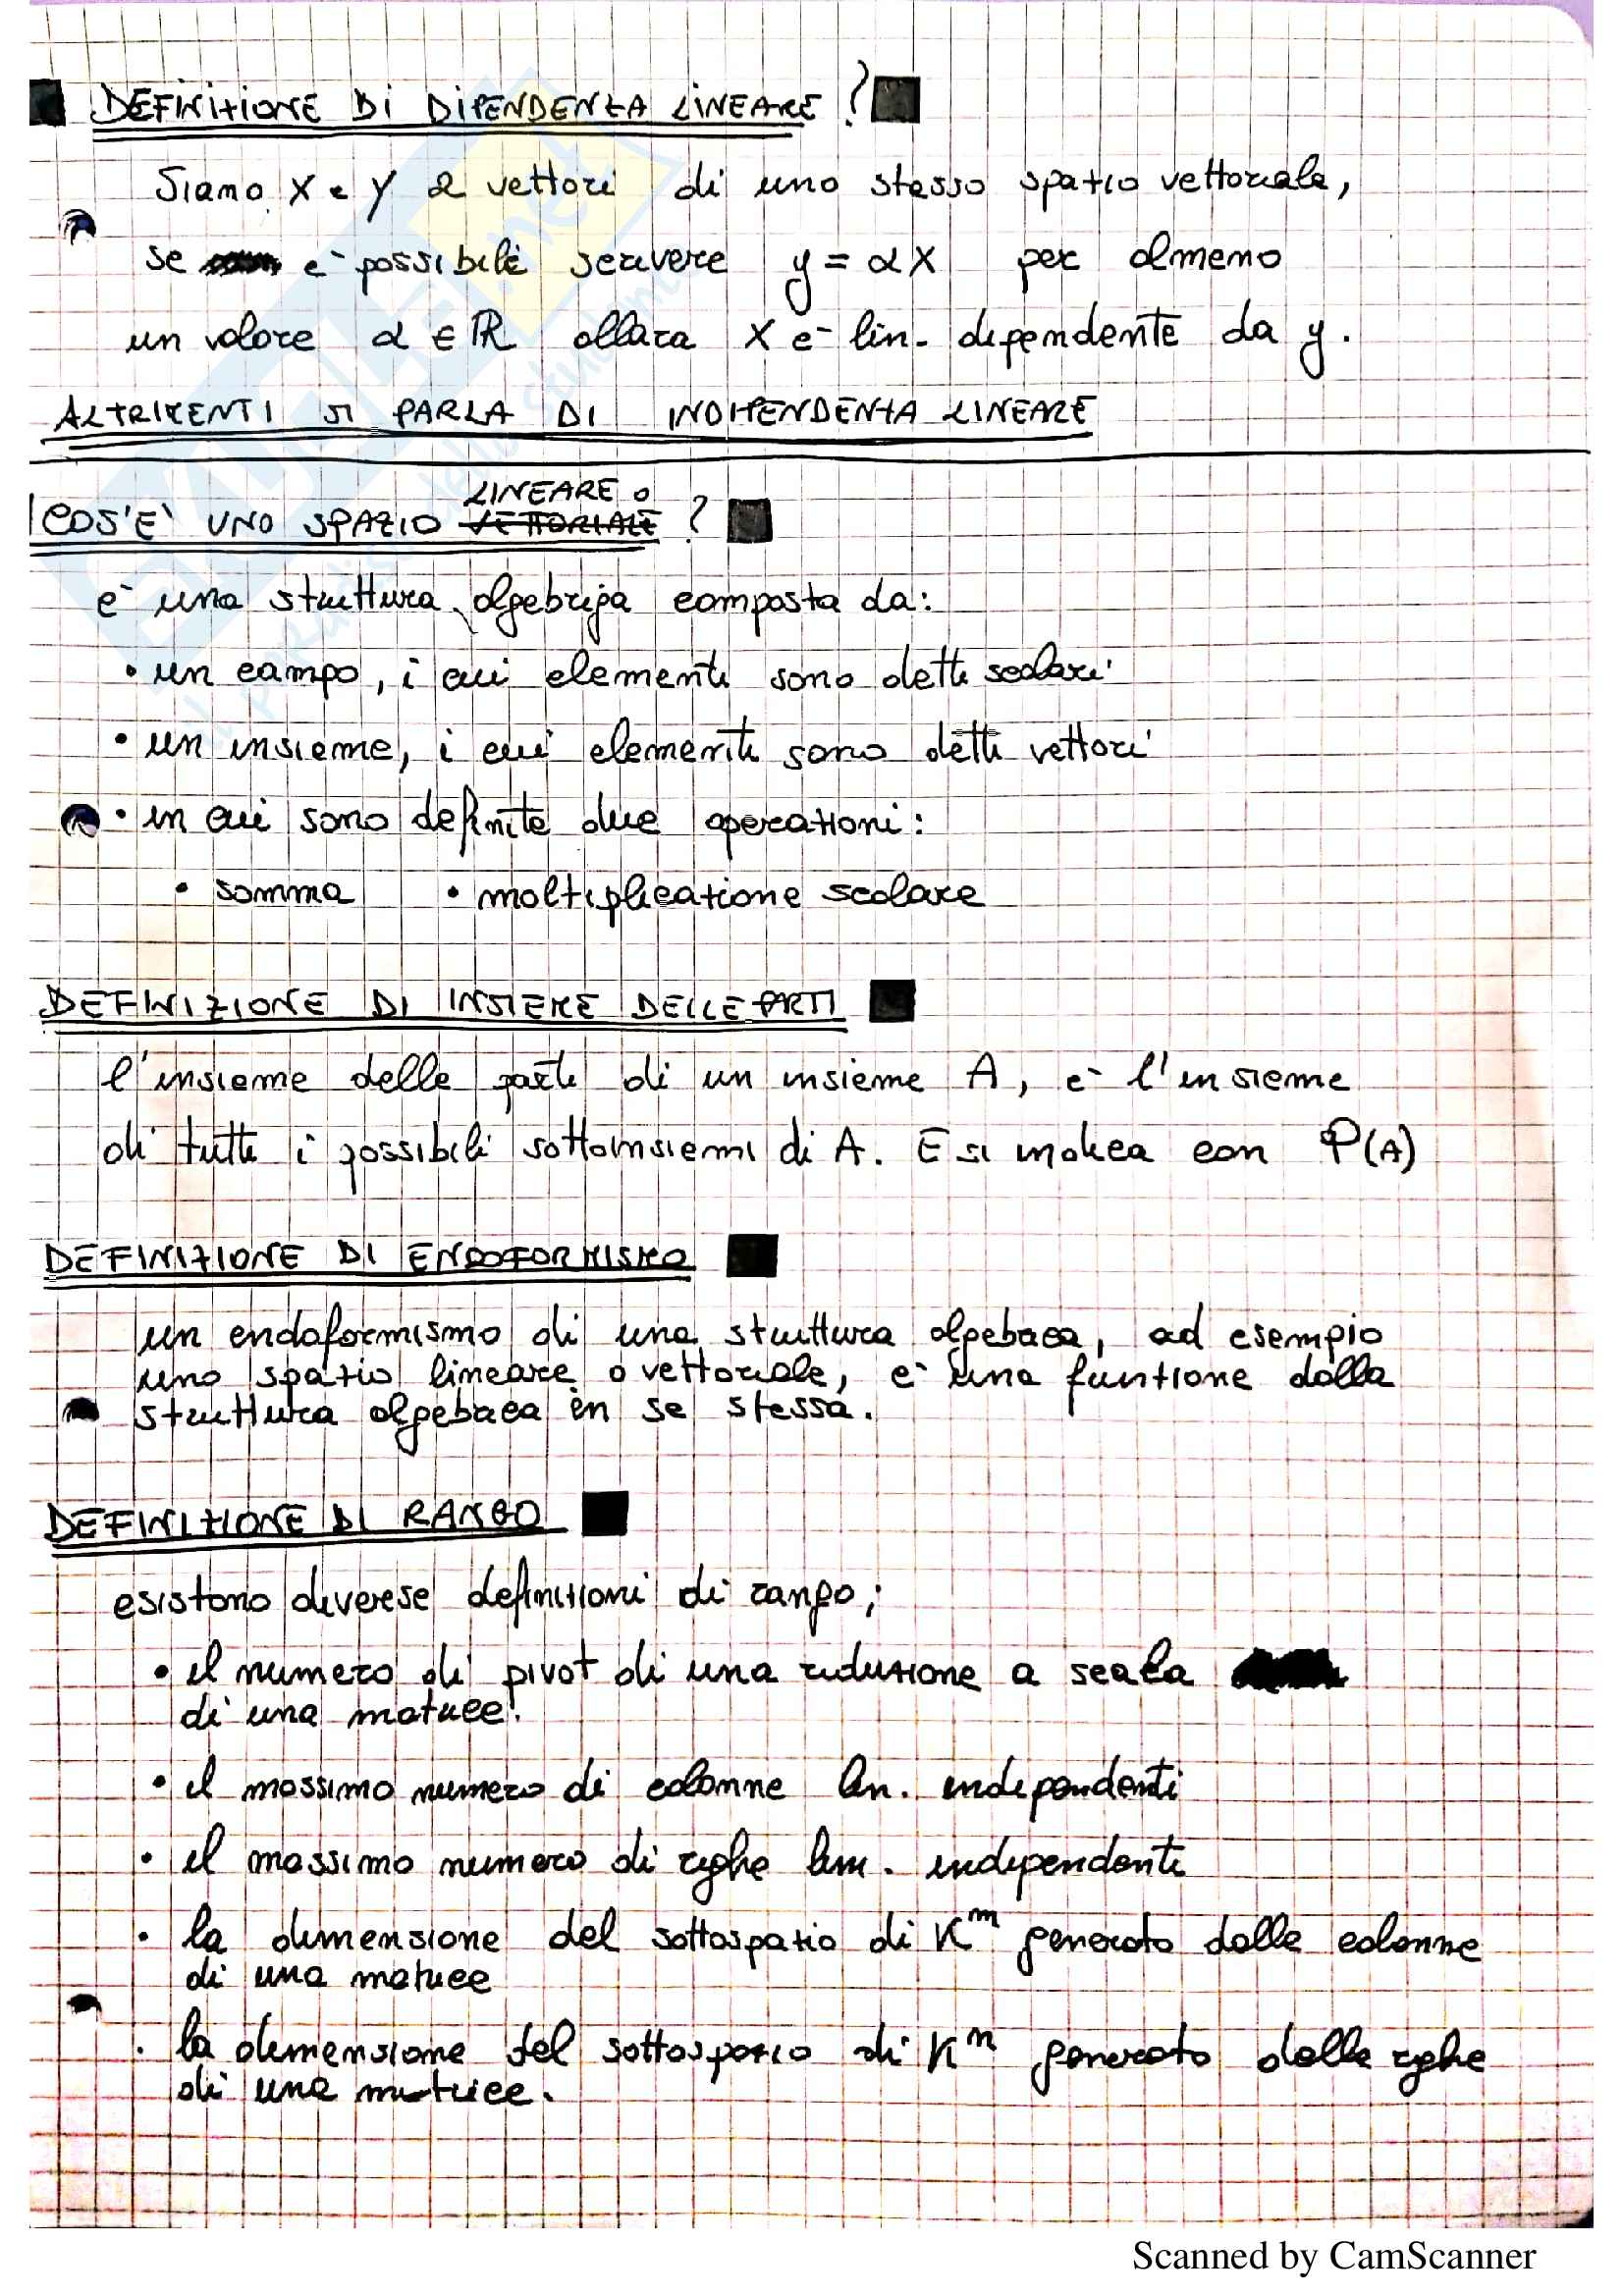 DEFINIZIONE DI DIPENDENZA LINEARE?
Siano X e Y 2 vettori di uno stesso spazio vettoriale,
se è possibile scrivere y = αX per almeno
un valore α ∈ ℝ allora X è lin. dipendente da y.
ALTRIMENTI SI PARLA DI INDIPENDENZA LINEARE
LINEARE o
COS'E' UNO SPAZIO VETTORIALE ?
è una struttura algebrica composta da:
• un campo, i cui elementi sono detti scalari
• un insieme, i cui elementi sono detti vettori
• in cui sono definite due operazioni:
• somma • moltiplicazione scalare
DEFINIZIONE DI INSIEME DELLE PARTI
l'insieme delle parti di un insieme A, è l'insieme
di tutti i possibili sottoinsiemi di A. E si indica con P(A)
DEFINIZIONE DI ENDOFORMISMO
un endoformismo di una struttura algebrica, ad esempio
uno spazio lineare o vettoriale, è una funzione dalla
struttura algebrica in se stessa.
DEFINIZIONE DI RANGO
esistono diverese definizioni di rango;
• il numero di pivot di una riduzione a scala
di una matrice.
• il massimo numero di colonne lin. indipendenti
• il massimo numero di righe lin. indipendenti
• la dimensione del sottospazio di Kᵐ generato dalle colonne
di una matrice
• la dimensione del sottospazio di Kⁿ generato dalle righe
di una matrice.
Scanned by CamScanner